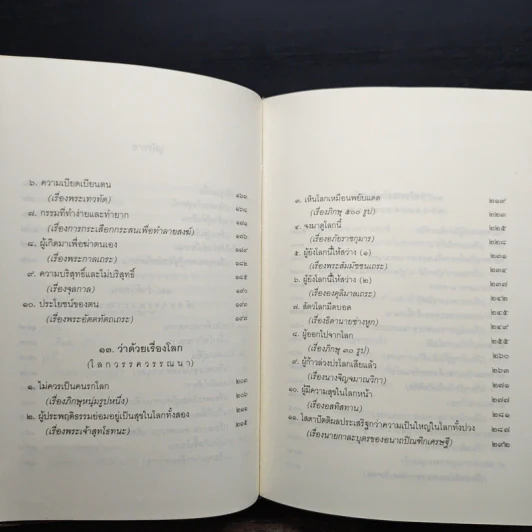 ๖. ความเบียดเบียนตน
(เรื่องพระเทวทัต)
๗. กรรมที่ทำง่ายและทำยาก
(เรื่องการกระเสือกกระสนเพื่อทำลายสงฆ์)
๘. ผู้เกิดมาเพื่อฆ่าตนเอง
(เรื่องพระกาลเถระ)
๙. ความบริสุทธิ์และไม่บริสุทธิ์
(เรื่องจุลกาล)
๑๐. ประโยชน์ของตน
(เรื่องพระอัตตทัตถเถระ)
๑๓. ว่าด้วยเรื่องโลก
(โลกวรรควรรณนา)
๑. ไม่ควรเป็นคนรกโลก
(เรื่องภิกษุหนุ่มรูปหนึ่ง)
๒. ผู้ประพฤติธรรมย่อมอยู่เป็นสุขในโลกทั้งสอง
(เรื่องพระเจ้าสุทโธทนะ) ๒๑๕
๓. เห็นโลกเหมือนพยับแดด ๒๑๙
(เรื่องภิกษุ ๕๐๐ รูป)
๔. จงมาดูโลกนี้ ๒๒๕
(เรื่องอภัยราชกุมาร)
๕. ผู้ยังโลกนี้ให้สว่าง (๑)
(เรื่องพระสัมมัชชนเถระ) ๒๓๔
๖. ผู้ยังโลกนี้ให้สว่าง (๒) ๒๓๗
(เรื่ององคุลิมาลเถระ)
๗. สัตว์โลกมืดบอด ๒๔๕
(เรื่องธิดานายช่างหูก)
๘. ผู้ออกไปจากโลก ๒๕๕
(เรื่องภิกษุ ๓๐ รูป)
๙. ผู้ก้าวล่วงปรโลกเสียแล้ว ๒๖๓
(เรื่องนางจิญจมาณวิกา)
๑๐. ผู้มีความสุขในโลกหน้า ๒๗๗
(เรื่องอสทิสทาน) ๒๘๑
๑๑. โสดาปัตติผลประเสริฐกว่าความเป็นใหญ่ในโลกทั้งปวง ๒๘๗
(เรื่องนายกาละบุตรของอนาถปิณฑิกเศรษฐี) ๒๙๒